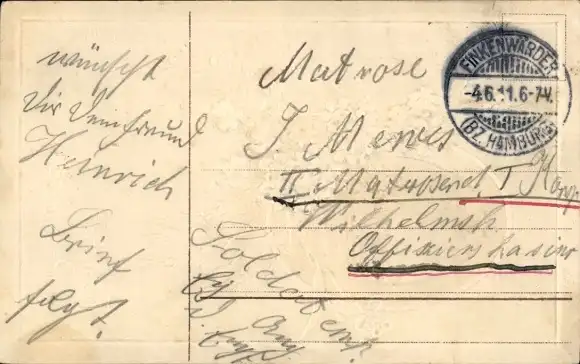 wünscht
Dir Dein Freund
Heinrich
Brief
folgt.
Matrose
J. Mewes
II Matrosend I Komp
Wilhelmsh
Offizierskasino
Soldaten
FINKENWÄRDER
-4.6.11.6-7V.
(BZ. HAMBURG)